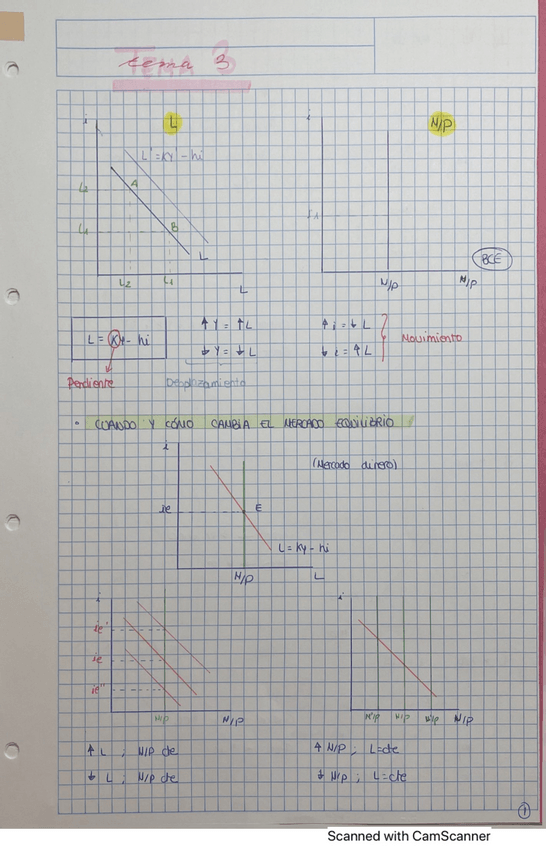 TEMA 3
tema 3
i
L
L' = Ky - hi
L2
A
L1
B
L
L2 L1
L
i
M/P
BCE
M/P M/P
L = Ky - hi
↑ Y = ↑ L
↓ Y = ↓ L
↑ i = ↓ L
↓ i = ↑ L
Movimiento
Pendiente
Desplazamiento
• CUANDO Y CÓMO CAMBIA EL MERCADO EQUILIBRIO
i
(Mercado dinero)
ie
E
L = Ky - hi
M/P
L
i
ie'
ie
ie''
M/P
M/P
i
M''/P M/P M'/P M/P
↑ L ; M/P cte
↓ L ; M/P cte
↑ M/P ; L=cte
↓ M/P ; L=cte
1
Scanned with CamScanner